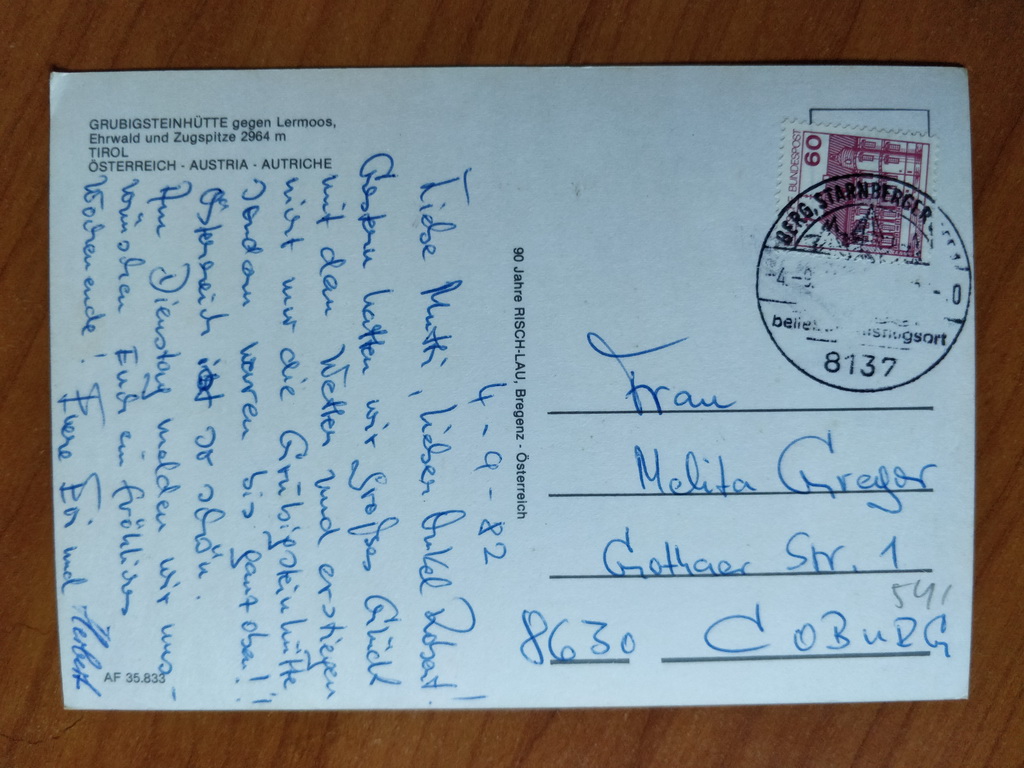 GRUBIGSTEINHÜTTE gegen Lermoos,
Ehrwald und Zugspitze 2964 m
TIROL
ÖSTERREICH - AUSTRIA - AUTRICHE
4-9-82
Liebe Mutti, lieber Onkel Robert!
Gestern hatten wir großes Glück
mit dem Wetter und erstiegen
nicht nur die Grubigsteinhütte
sondern waren bis ganz oben!!
Österreich ist so schön.
Am Dienstag melden wir uns -
wünschen Euch ein fröhliches
Wochenende! Eure Evi und Herbert
AF 35.833
90 Jahre RISCH-LAU, Bregenz - Österreich
BUNDESPOST
60
BERG, STARNBERGER
4.-9.
8137
Frau
Melita Greger
Gothaer Str. 1
541
8630 COBURG